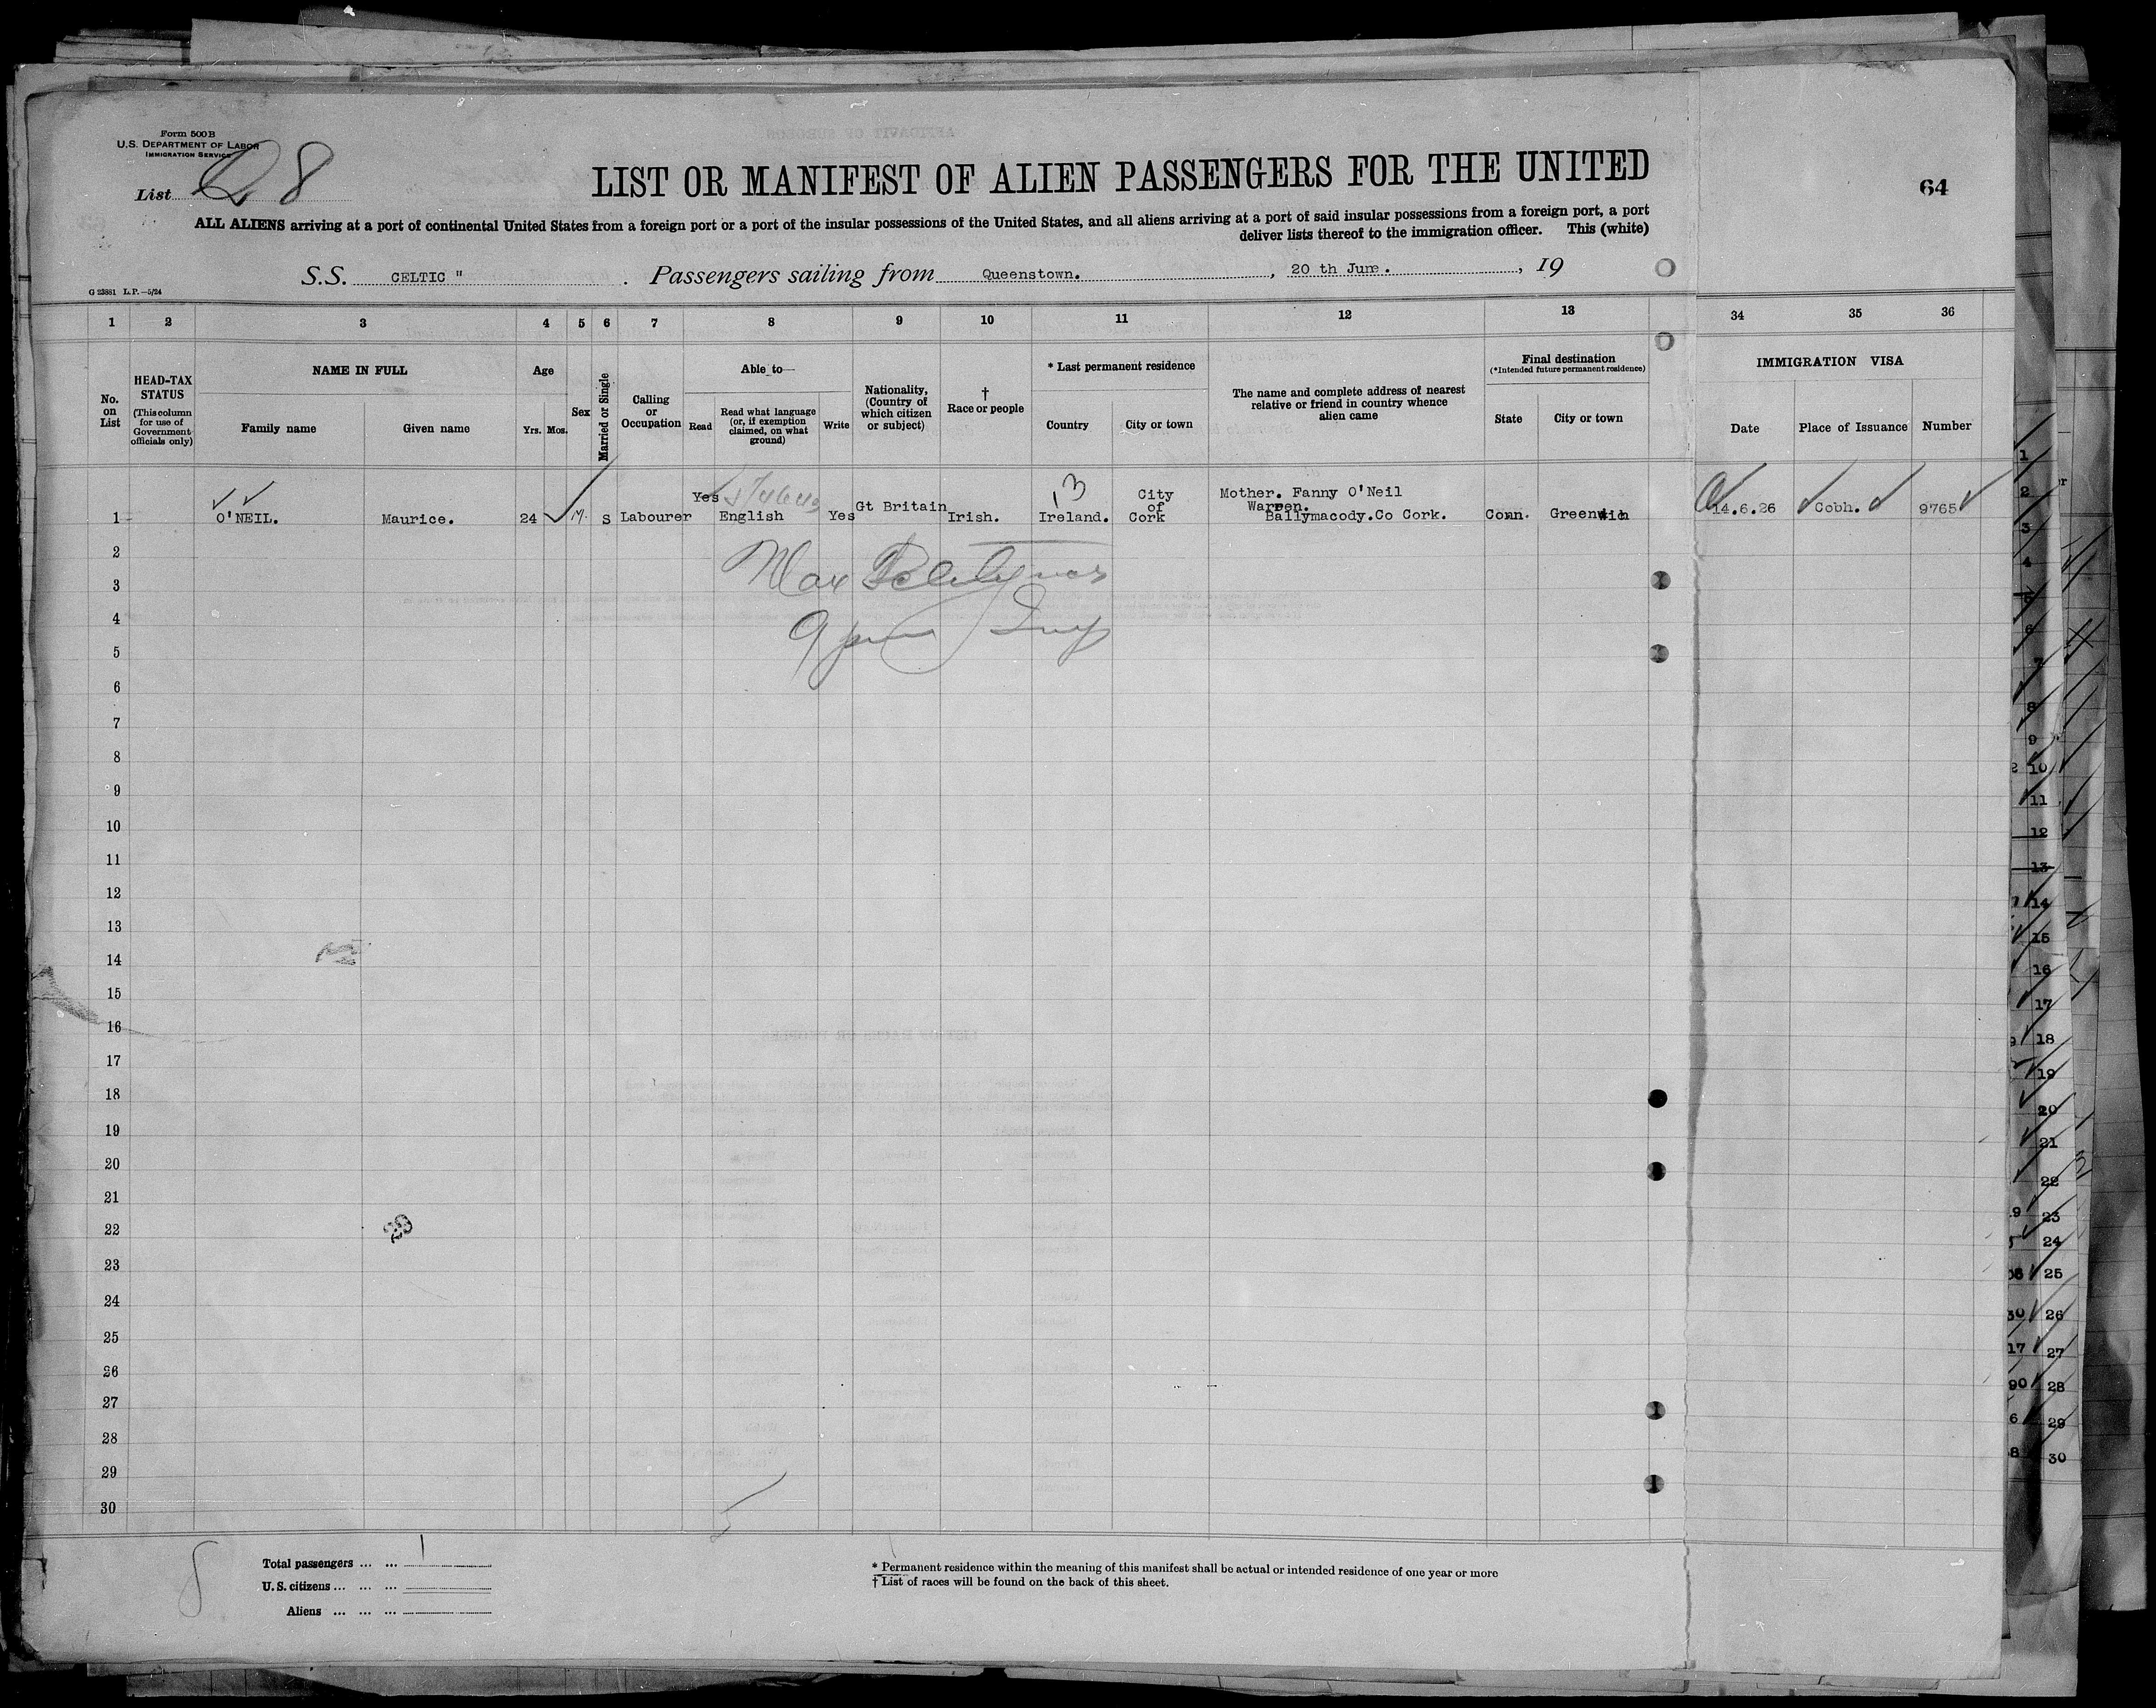 Form 500 B
U.S. DEPARTMENT OF LABOR
IMMIGRATION SERVICE
List Q 8
LIST OR MANIFEST OF ALIEN PASSENGERS FOR THE UNITED
64
ALL ALIENS arriving at a port of continental United States from a foreign port or a port of the insular possessions of the United States, and all aliens arriving at a port of said insular possessions from a foreign port, a port
deliver lists thereof to the immigration officer. This (white)
S.S. CELTIC " . Passengers sailing from Queenstown. , 20 th June. , 19
G 23881 L.P.—5/24
1 2 3 4 5 6 7 8 9 10 11 12 13 34 35 36
No. on List
HEAD-TAX STATUS
(This column for use of Government officials only)
NAME IN FULL
Family name
Given name
Age
Yrs. Mos.
Sex
Married or Single
Calling or Occupation
Able to—
Read
Read what language (or, if exemption claimed, on what ground)
Write
Nationality, (Country of which citizen or subject)
† Race or people
* Last permanent residence
Country
City or town
The name and complete address of nearest relative or friend in country whence alien came
Final destination
(*Intended future permanent residence)
State
City or town
IMMIGRATION VISA
Date
Place of Issuance
Number
1 O'NEIL. Maurice. 24 M. S Labourer Yes English Yes Gt Britain Irish. Ireland. City of Cork Mother. Fanny O'Neil Warren. Ballymacody.Co Cork. Conn. Greenwich 14.6.26 Cobh. 9765
13
2
3
4
5
6
7
8
9
10
11
12
13
14
15
16
17
18
19
20
21
22
23
24
25
26
27
28
29
30
Total passengers ... ... 1
U.S. citizens ... ... ...
Aliens ... ... ...
* Permanent residence within the meaning of this manifest shall be actual or intended residence of one year or more
† List of races will be found on the back of this sheet.